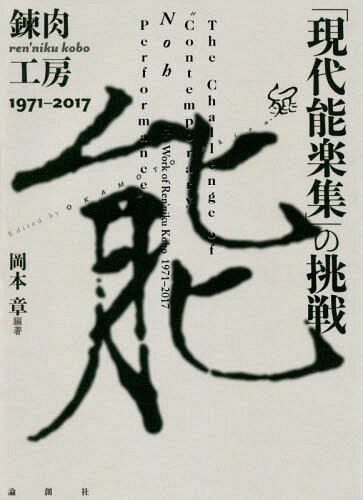 「現代能楽集」の挑戦
錬肉
ren'niku kobo
工房
1971–2017
The Challenge of
"Contemporary
Noh
Performance"
The Work of Ren'niku Kobo 1971–2017
Edited by OKAMOTO Akira
能
岡本 章
編著
論創社